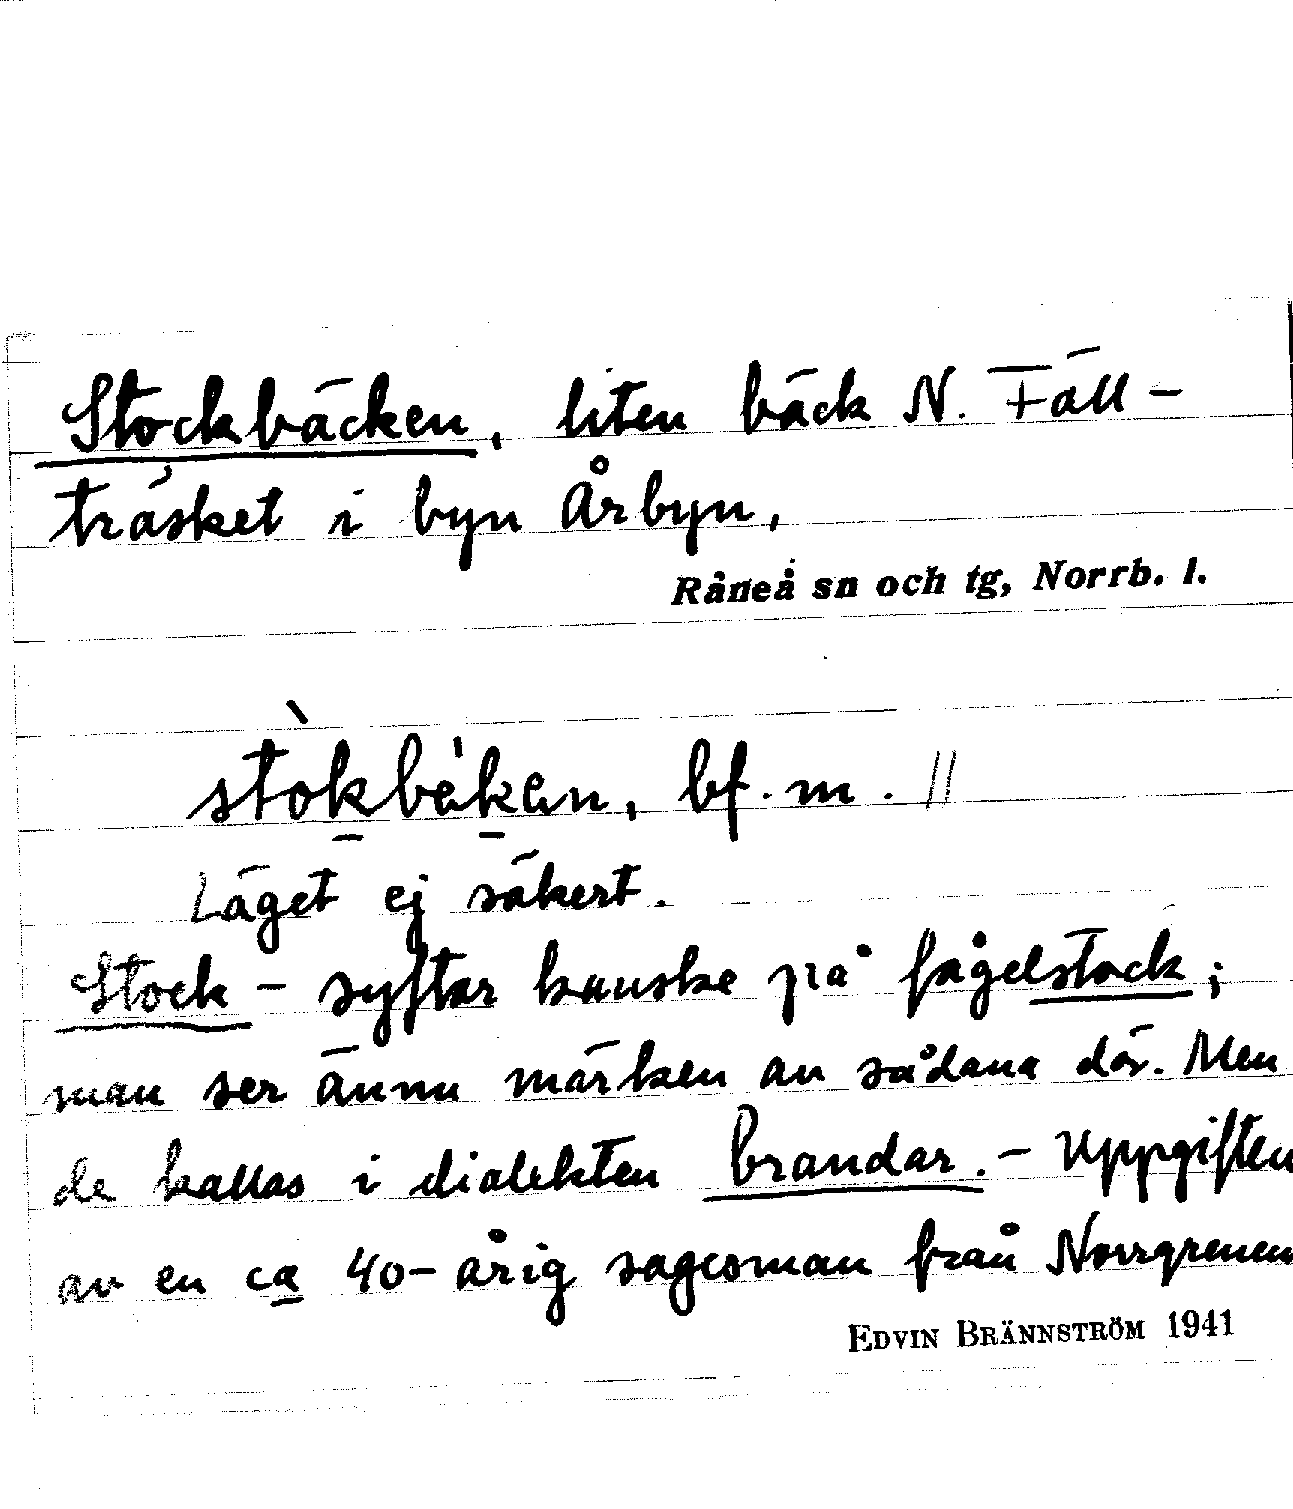 Stockbäcken, liten bäck N. Fäll-
träsket i byn Årbyn,
Råneå sn och tg, Norrb. l.
stòkbèkan, bf. m. //
Läget ej säkert.
Stock- syftar kanske på fågelstock;
man ser ännu märken av sådana där. Men
de kallas i dialekten brandar. - Uppgiften
av en ca 40-årig sagesman från Norrgrenen
EDVIN BRÄNNSTRÖM 1941